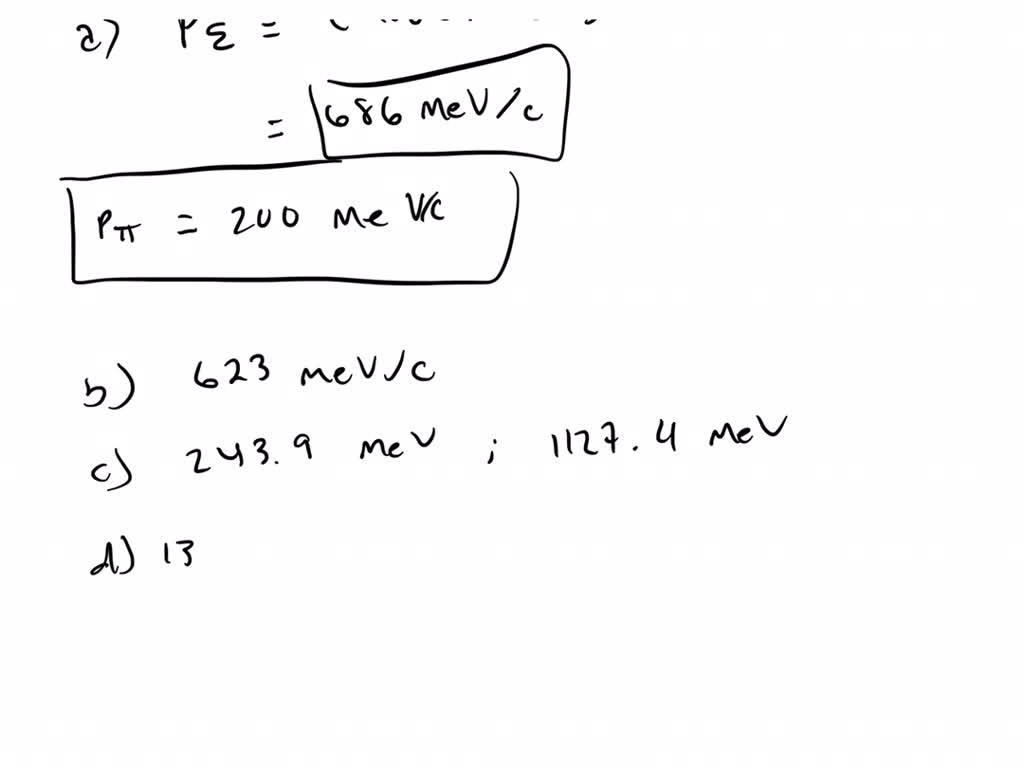 a) PΣ =
= 686 MeV/c
Pπ = 200 MeV/c
b) 623 MeV/c
c) 243.9 MeV ; 1127.4 MeV
d) 13